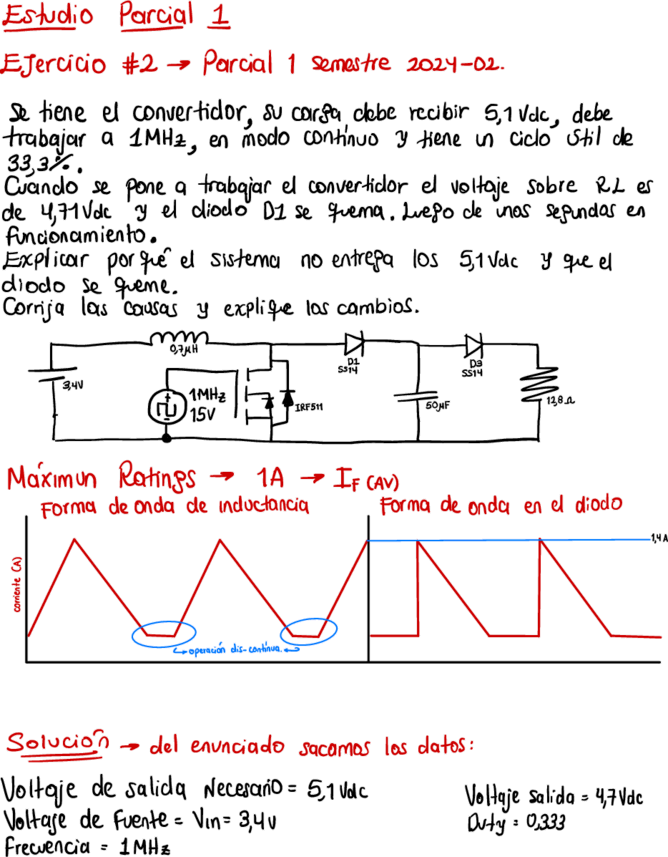 Estudio Parcial 1
Ejercicio #2 → Parcial 1 semestre 2024-02.
Se tiene el convertidor, su carga debe recibir 5,1 Vdc, debe
trabajar a 1MHz, en modo continuo y tiene un ciclo útil de
33,3%.
Cuando se pone a trabajar el convertidor el voltaje sobre RL es
de 4,71Vdc y el diodo D1 se quema. Luego de unos segundos en
funcionamiento.
Explicar por qué el sistema no entrega los 5,1Vdc y que el
diodo se queme.
Corrija las causas y explique los cambios.
0,7μH
D1
SS14
D3
SS14
3,4V
1MHz
15V
IRF511
50μF
12,8Ω
Máximun Ratings → 1A → IF(AV)
Forma de onda de inductancia
Forma de onda en el diodo
1,4A
corriente (A)
operación dis-continua.
Solución → del enunciado sacamos los datos:
Voltaje de salida Necesario = 5,1 Vdc
Voltaje salida = 4,7Vdc
Voltaje de Fuente = Vin = 3,4v
Duty = 0,333
Frecuencia = 1MHz